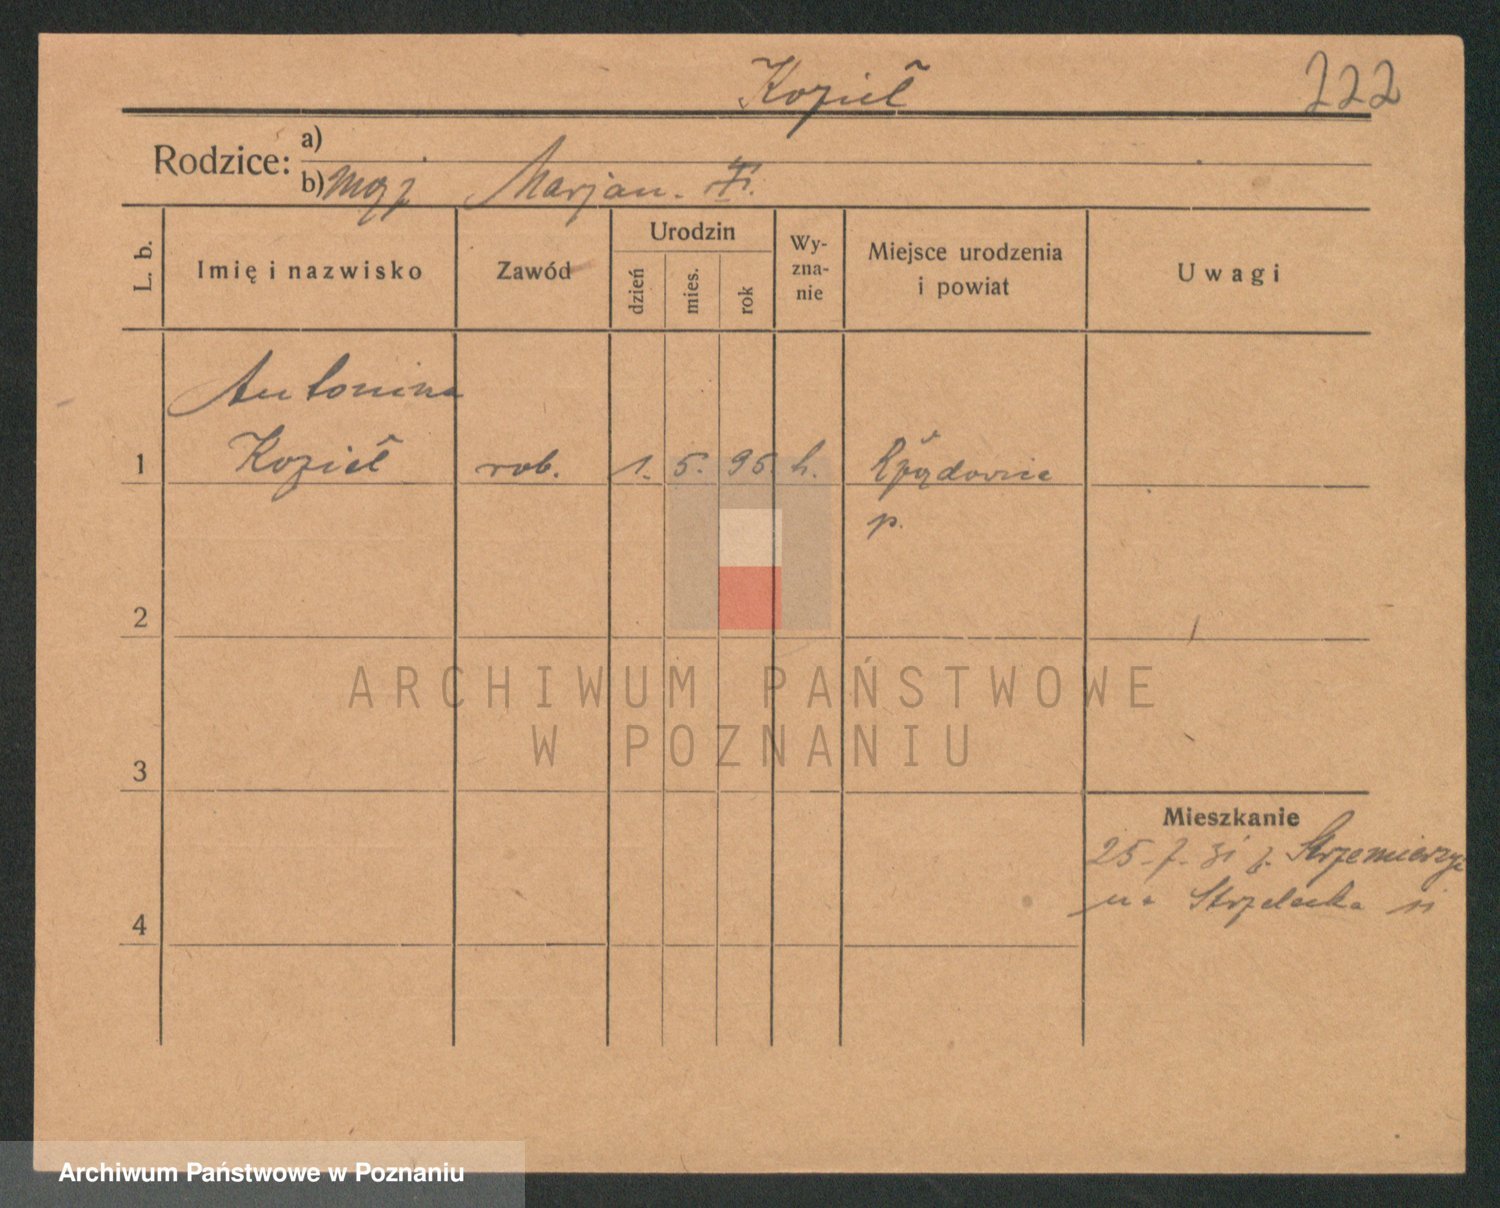 Kozieł 222
Rodzice: a)
b) mąż Marjan.
L. b. Imię i nazwisko Zawód Urodzin dzień mies. rok Wy-zna-nie Miejsce urodzenia i powiat Uwagi
Antonina
1 Kozieł rob. 1. 5. 95. k.
p.
2
3
Mieszkanie
25-7-31 z.
na Strzelecka 11
4
ARCHIWUM PAŃSTWOWE
W POZNANIU
Archiwum Państwowe w Poznaniu